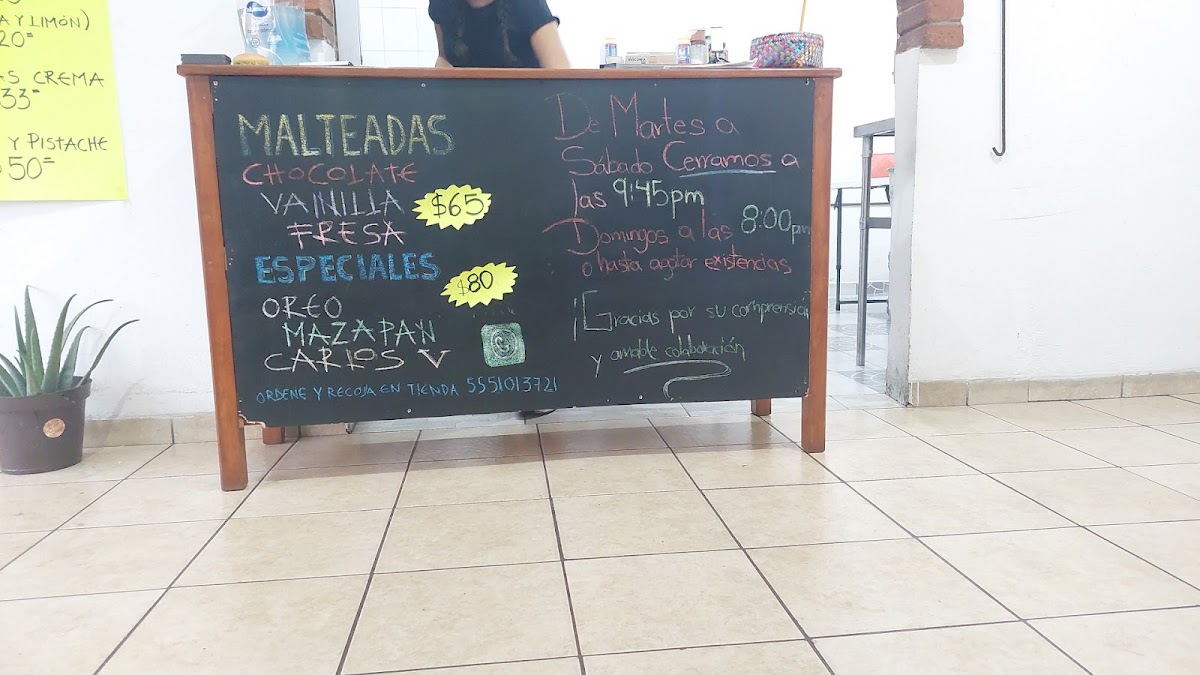 A Y LIMÓN)
20=
AS CREMA
33=
Y PISTACHE
$50=
MALTEADAS
CHOCOLATE
VAINILLA
$65
FRESA
ESPECIALES
$80
OREO
MAZAPAN
CARLOS V
ORDENE Y RECOJA EN TIENDA 5551013721
De Martes a
Sábado Cerramos a
las 9:45pm
Domingos a las 8:00pm
o hasta agotar existencias
¡Gracias por su comprensión
y amable colaboración